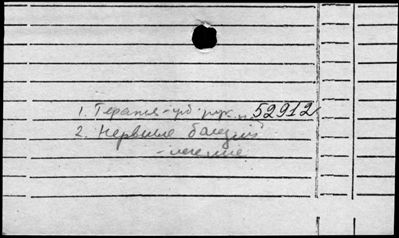 1. Терапия - уб. рук. 52912
2. Нервные болезни
- лечение